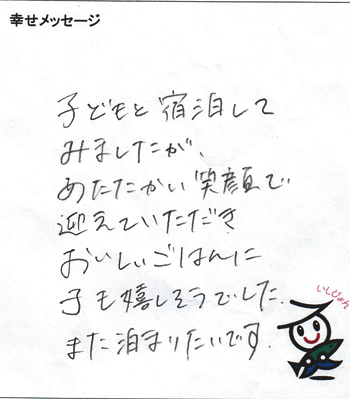 幸せメッセージ
子どもと宿泊して
みましたが、
あたたかい笑顔で
迎えていただき
おいしいごはんに
子も嬉しそうでした.
また泊まりたいです.
いしぴょん